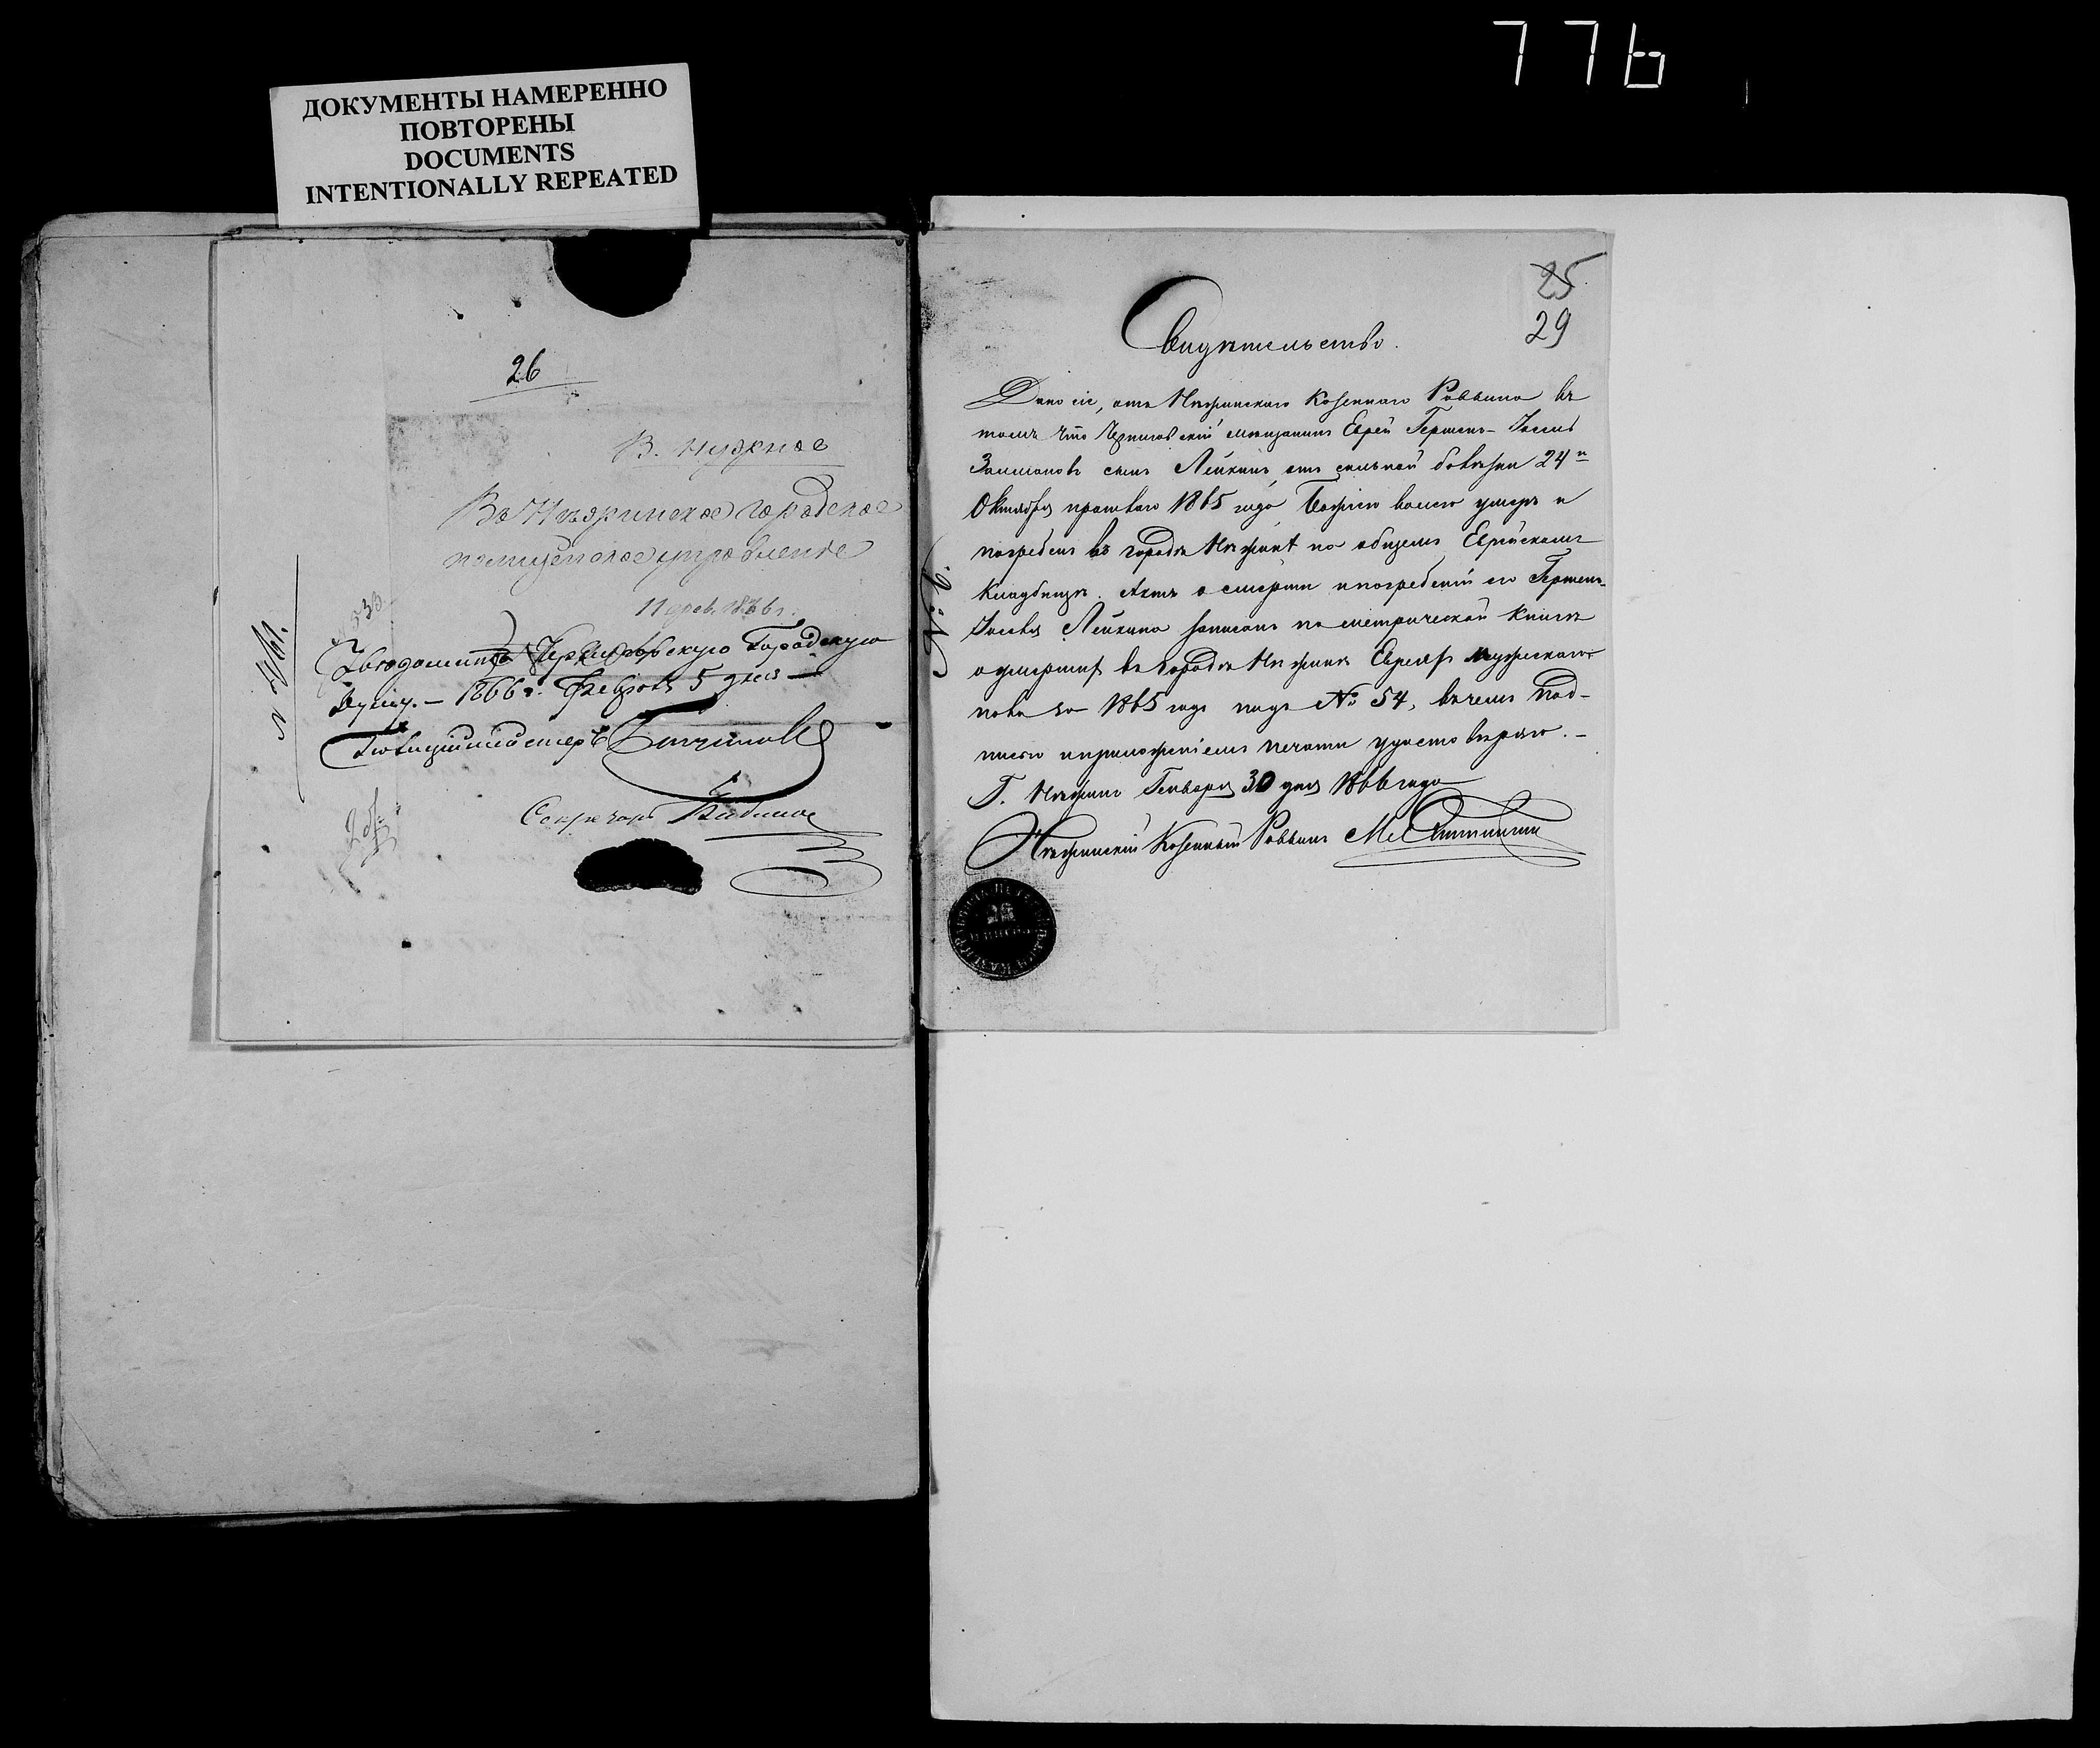 776
ДОКУМЕНТЫ НАМЕРЕННО
ПОВТОРЕНЫ
DOCUMENTS
INTENTIONALLY REPEATED
26
В. нужное
Въ Нѣжинское городское
полицейское управленіе
11 фев. 1866 г.
Увѣдомить Черниговскую Городскую
Думу. – 1866 г. Февраля 5 дня –
Полиціймейстеръ
Секретарь
25
29
Свидѣтельство.
Дано сіе, отъ Нѣжинскаго Козеннаго Раввина въ
томъ что Черниговскій мѣщанинъ Еврей Гершенъ-Іосель
Залмановъ сынъ Лейкинъ, отъ сильной болѣзни 24го
Октября прошлаго 1865 года Божіею волею умеръ и
погребенъ въ городѣ Нѣжинѣ на общемъ Еврейскомъ
кладбищѣ. Актъ о смерти и погребеніи его Гершена-
Іоселя Лейкина записанъ по метрической книгѣ
о умершихъ въ городѣ Нѣжинѣ Евреяхъ мужескаго
пола за 1865 годъ подъ № 54, въ чемъ под-
писью и приложеніемъ печати удостовѣряю. –
Г. Нѣжинъ Генваря 30 дня 1866 года
Нѣжинскій Козенный Раввинъ
№ 6.